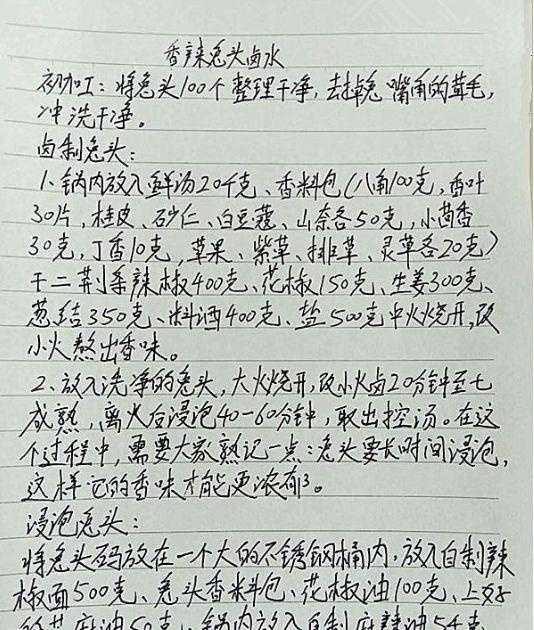 香辣兔头卤水
初加工：将兔头100个整理干净，去掉兔嘴角的茸毛，
冲洗干净。
卤制兔头：
1、锅内放入鲜汤20千克、香料包（八角100克，香叶
30片，桂皮、砂仁、白豆蔻、山奈各50克，小茴香
30克，丁香10克，草果、紫草、排草、灵草各20克）
干二荆条辣椒400克、花椒150克、生姜300克、
葱结350克、料酒400克、盐500克中火烧开，改
小火熬出香味。
2、放入洗净的兔头，大火烧开，改小火卤20分钟至七
成熟，离火后浸泡40-60分钟，取出控汤。在这
个过程中，需要大家熟记一点：兔头要长时间浸泡，
这样它的香味才能更浓郁。
浸泡兔头：
将兔头码放在一个大的不锈钢桶内，放入自制辣
椒面500克、兔头香料包、花椒油100克、上好
的芝麻油50克；锅内放入自制麻辣油5千克